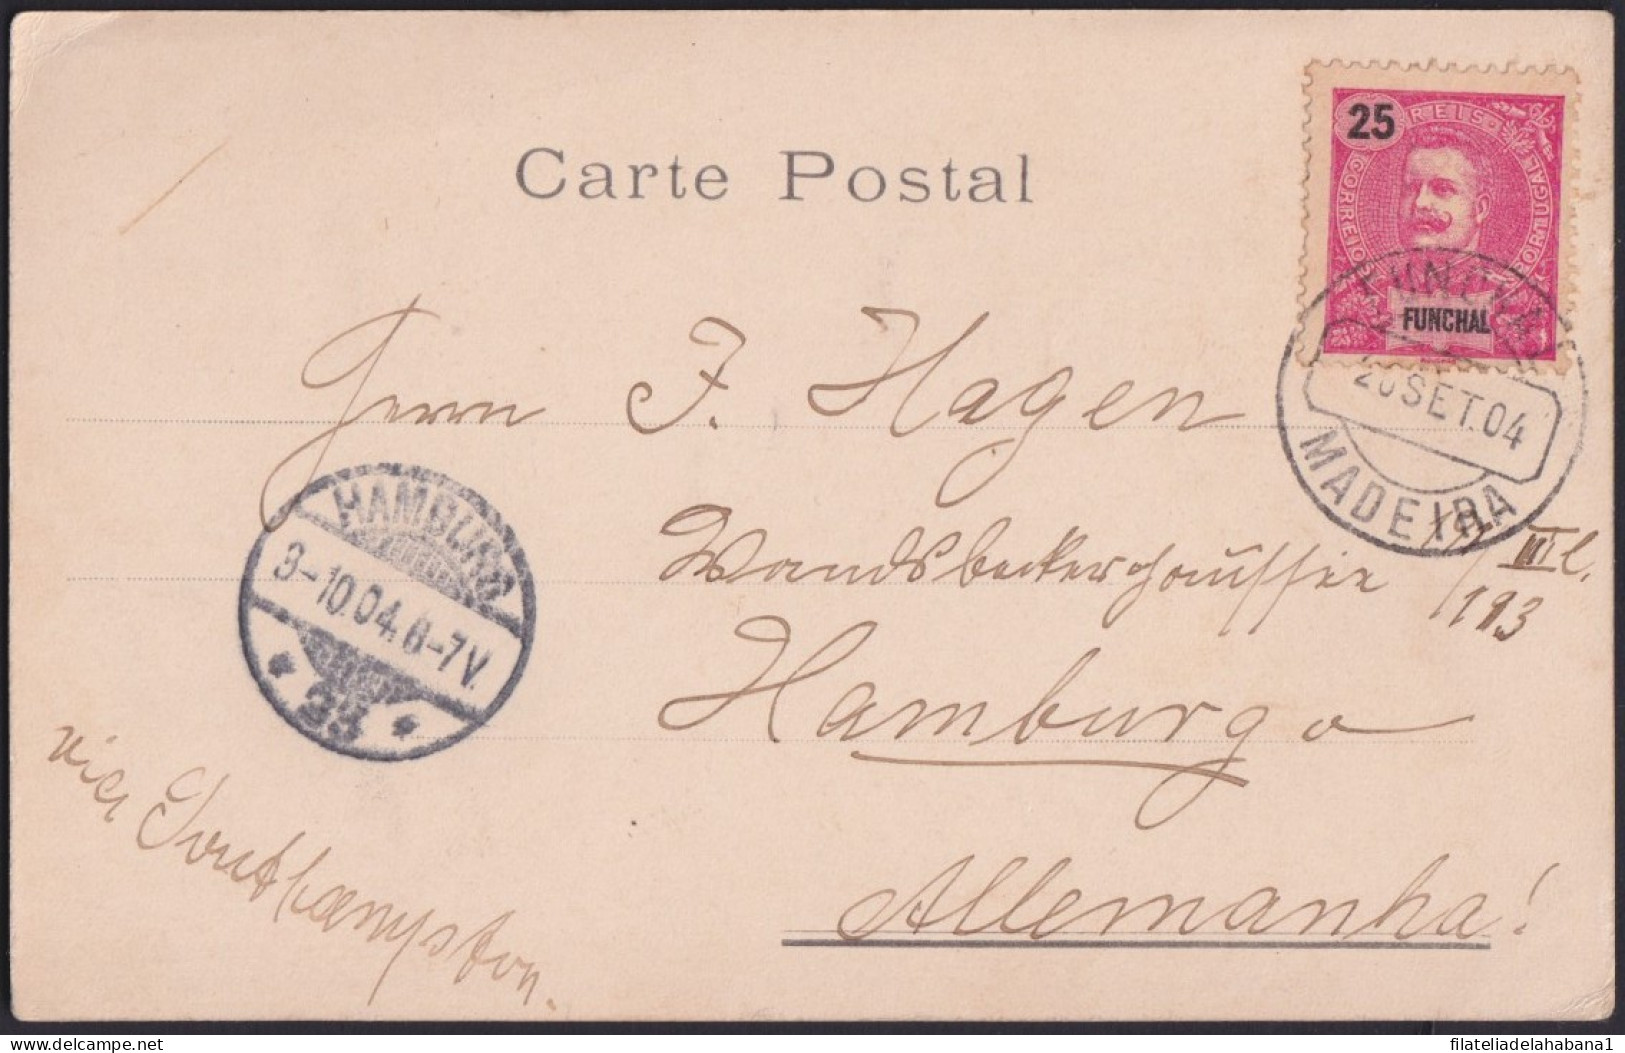 Carte Postal
25
REIS
CORREIOS
PORTUGAL
FUNCHAL
FUNCHAL
SET.04
MADEIRA
Herrn J. Hagen
Wandsbeckerchaussee
193
III
Hamburgo
Allemanha!
HAMBURG
3-10.04.6-7V.
via Southampton.
delcampe.net
filateliadelahabana1